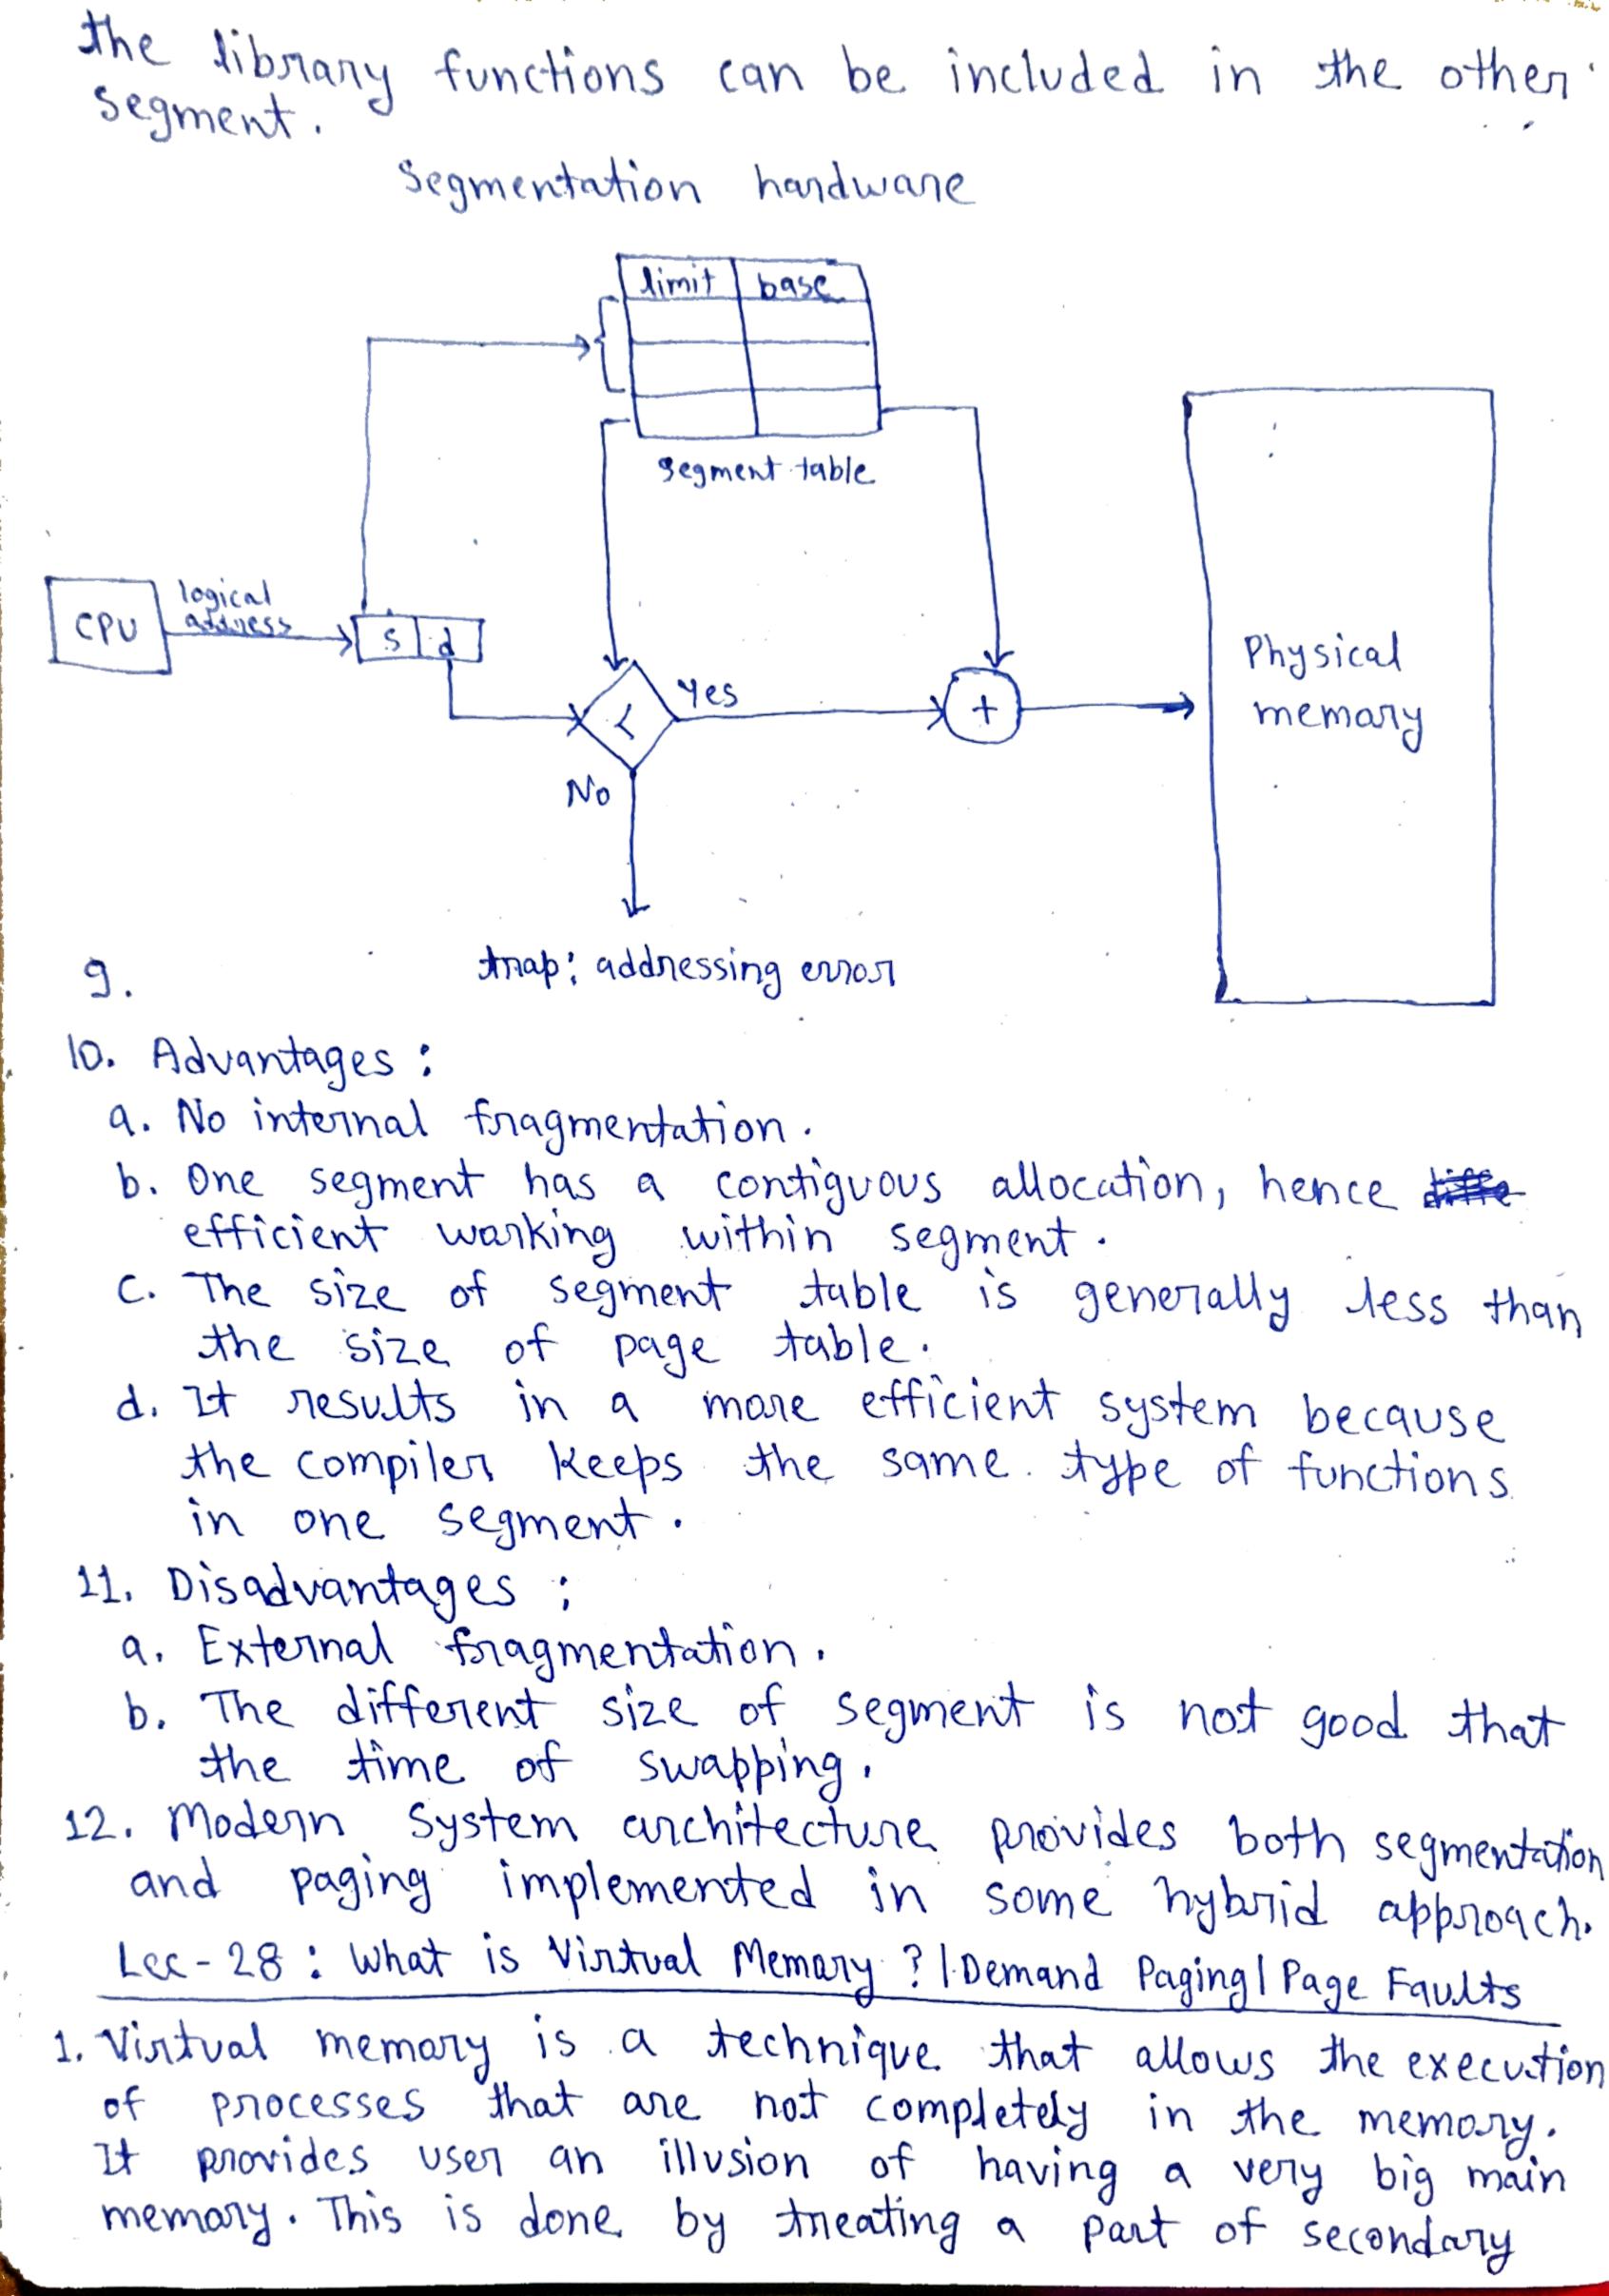 the library functions can be included in the other
segment.
Segmentation hardware
limit base
segment table
CPU
logical
address
s d
<
Yes
+
Physical
memory
No
9.
trap: addressing error
10. Advantages :
a. No internal fragmentation.
b. One segment has a contiguous allocation, hence
efficient working within segment.
c. The size of segment table is generally less than
the size of page table.
d. It results in a more efficient system because
the compiler keeps the same type of functions
in one segment.
11. Disadvantages :
a. External fragmentation.
b. The different size of segment is not good that
the time of swapping.
12. Modern System architecture provides both segmentation
and paging implemented in some hybrid approach.
Lec-28 : What is Virtual Memory ? | Demand Paging | Page Faults
1. Virtual memory is a technique that allows the execution
of processes that are not completely in the memory.
It provides user an illusion of having a very big main
memory. This is done by treating a part of secondary